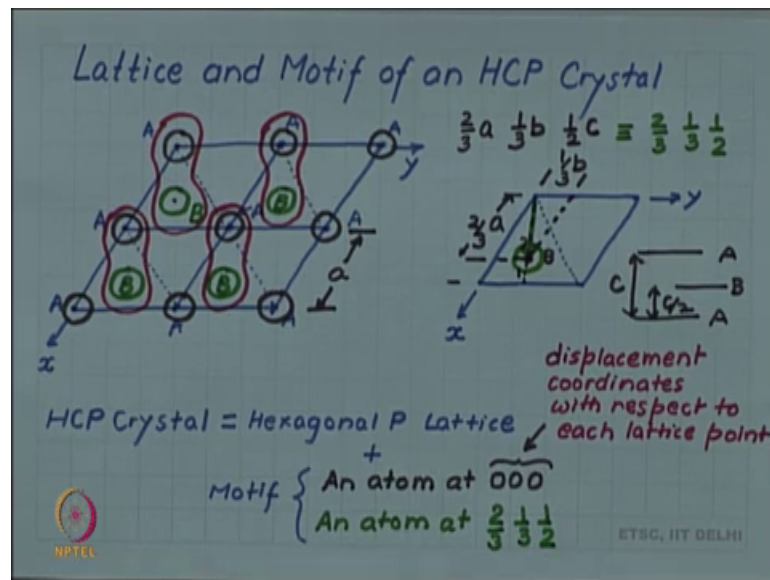 Lattice and Motif of an HCP Crystal
A A A
2/3 a 1/3 b 1/2 c ≡ 2/3 1/3 1/2
y
1/3 b
B B
A A A
a
2/3 a
B
y
C
A
B
A
c/2
B B
A A A
x
x
displacement
coordinates
with respect to
each lattice point
HCP Crystal = Hexagonal P Lattice
+
Motif { An atom at 000
An atom at 2/3 1/3 1/2
NPTEL
ETSC, IIT DELHI